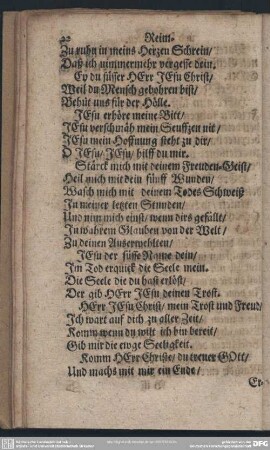 Reim-
Zu ruhn in meins Herzen Schrein/
Daß ich nimmermehr vergesse dein.
Ey du süsser HErr JEsu Christ/
Weil du Mensch gebohren bist/
Behüt uns für der Hölle.
JEsu erhöre meine Bitt/
JEsu verschmäh mein Seufftzen nit/
JEsu mein Hoffnung steht zu dir/
O JEsu/ JEsu/ hilff du mir.
Stärck mich mit deinem Freuden-Geist/
Heil mich mit dein fünff Wunden/
Wasch mich mit deinem Todes Schweiß
In meiner letzten Stunden/
Und nim mich einst/ wenn dirs gefällt/
In wahrem Glauben von der Welt/
Zu deinen Auserwehlten/
JEsu der süsse Name dein/
Im Tod erquick die Seele mein.
Die Seele die du hast erlöst/
Der gib HErr JEsu deinen Trost.
HErr JEsu Christ/ mein Trost und Freud/
Ich wart auf dich zu aller Zeit/
Komm wenn du wilt ich bin bereit/
Gib mir die ewge Seeligkeit.
Komm HErr Christe/ du treuer GOtt/
Und machs mit mir ein Ende/
Er-